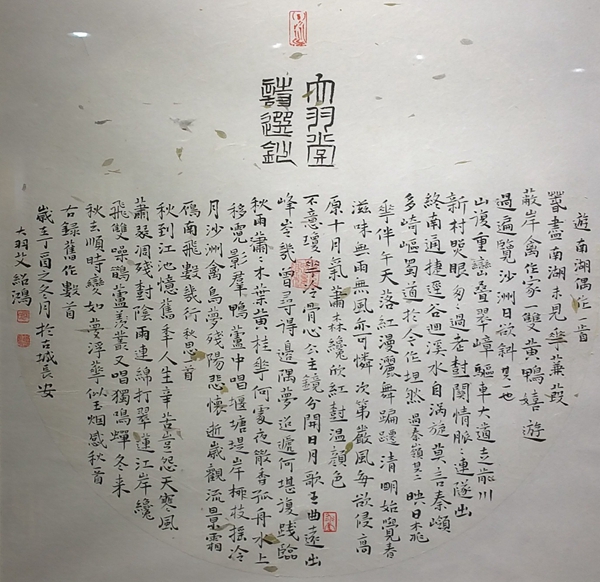 大羽堂
詩選鈔
遊南湖偶作一首
暫盡南湖未見華蒹葭
蔽岸禽作家一雙黃鴨嬉遊
過遍覽沙洲日欲斜其也
山復重巒疊翠嶂驅車大道走熊川
新村煚眼匆過老封閿情脈連隊出
終南通捷逕谷迴溪水自滿旋莫言秦嶺
多崎嶇蜀道於今作坦然 過秦嶺其二 映日木飛
華伴午天落紅漫灑舞蹁躚清明始覺春
滋味無雨無風亦可憐次第嚴風每欲侵高
原十月氣蕭森纔欣紅封溫顏色
不意瓊華冷骨心公主鏡分開日月歌王曲遠出
峰岑幾曾尋得邊隅夢迢遞何堪復踐臨
秋雨蕭木葉黃桂華何處夜散香孤舟水上
移霓影羣鴨蘆中唱堰塘堤岸柳枝搖冷
月沙洲禽鳥夢殘陽悲懷逝歲觀流景霜
雁南飛數幾行 秋思一首
秋到江池憶舊年人生辛苦豈怨天寒風
蕭瑟凋殘封陰雨連綿打翠蓮江岸纔
飛雙噪鵲蘆叢又唱獨鳴蟬冬來
秋去順時變如夢浮華似玉烟 感秋一首
右錄舊作數首
歲在丁酉之冬月於古城長安
大羽父紹鴻